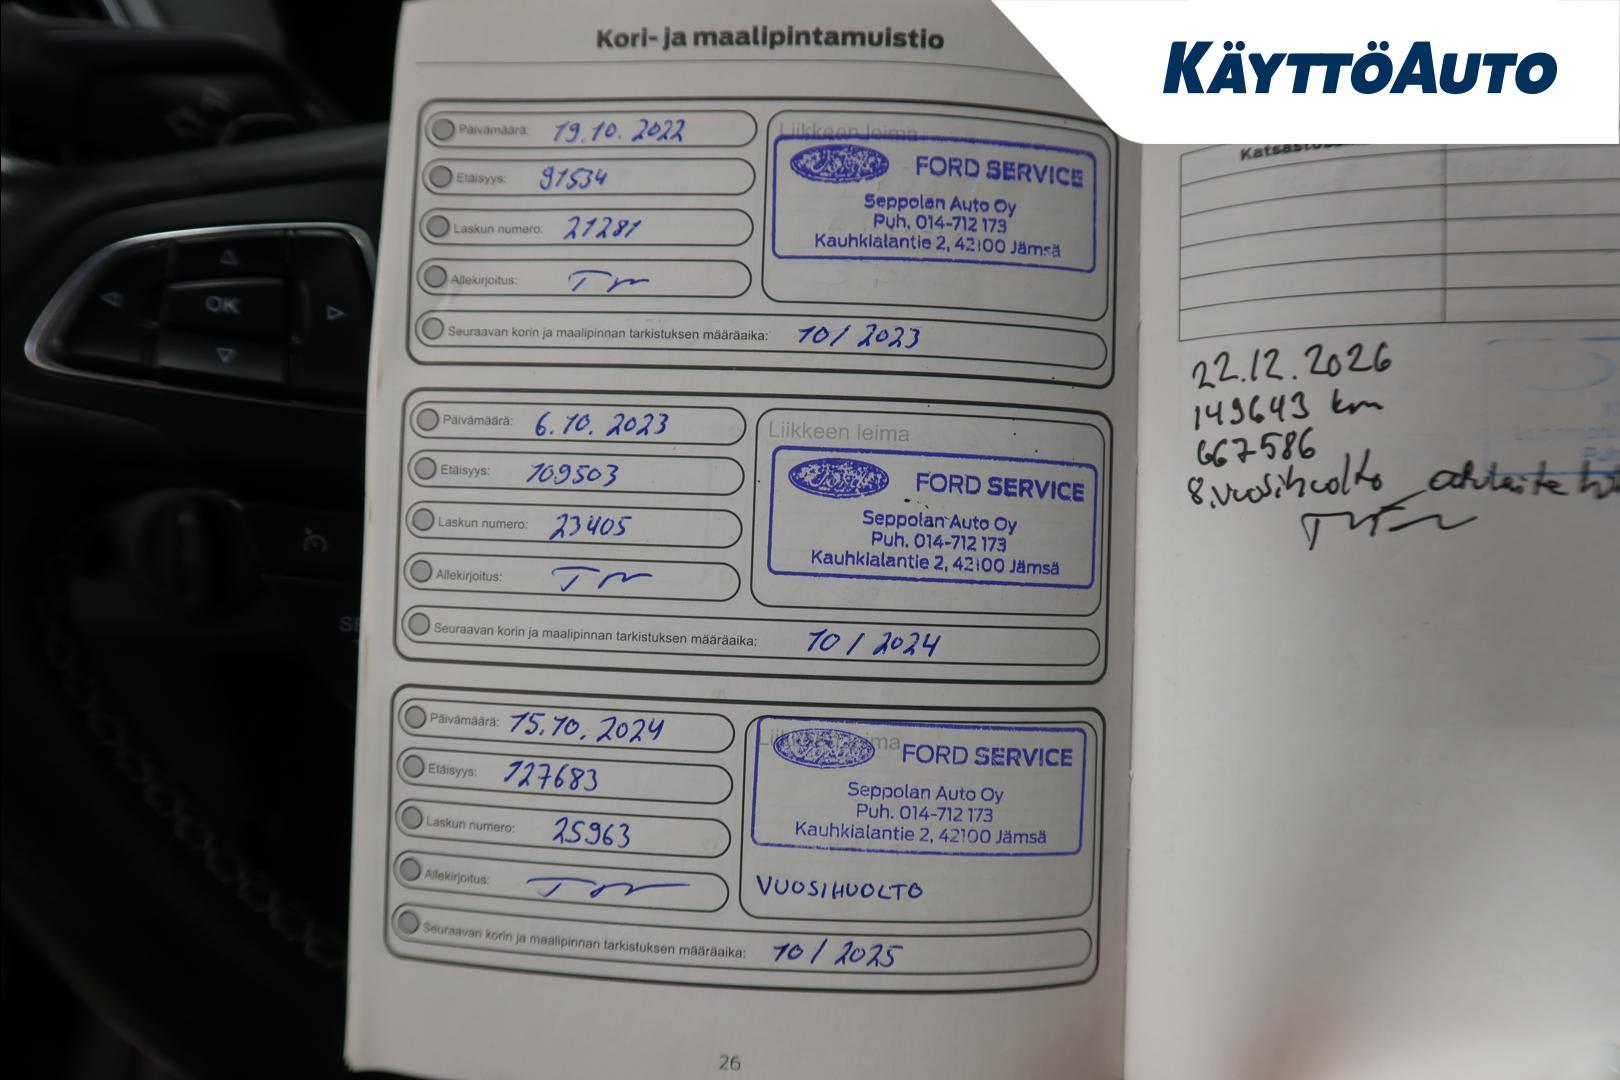 KÄYTTÖAUTO
Kori- ja maalipintamuistio
Päivämäärä: 19.10.2022
Etäisyys: 91534
Laskun numero: 21281
Allekirjoitus:
Liikkeen leima
Ford FORD SERVICE
Seppolan Auto Oy
Puh. 014-712 173
Kauhkialantie 2, 42100 Jämsä
Seuraavan korin ja maalipinnan tarkistuksen määräaika: 10/2023
Päivämäärä: 6.10.2023
Etäisyys: 109503
Laskun numero: 23405
Allekirjoitus:
Liikkeen leima
Ford FORD SERVICE
Seppolan Auto Oy
Puh. 014-712 173
Kauhkialantie 2, 42100 Jämsä
Seuraavan korin ja maalipinnan tarkistuksen määräaika: 10/2024
Päivämäärä: 15.10.2024
Etäisyys: 127683
Laskun numero: 25963
Allekirjoitus:
Liikkeen leima
Ford FORD SERVICE
Seppolan Auto Oy
Puh. 014-712 173
Kauhkialantie 2, 42100 Jämsä
VUOSIHUOLTO
Seuraavan korin ja maalipinnan tarkistuksen määräaika: 10/2025
26
22.12.2026
149643 km
667586
8.vuosihuolto
OK